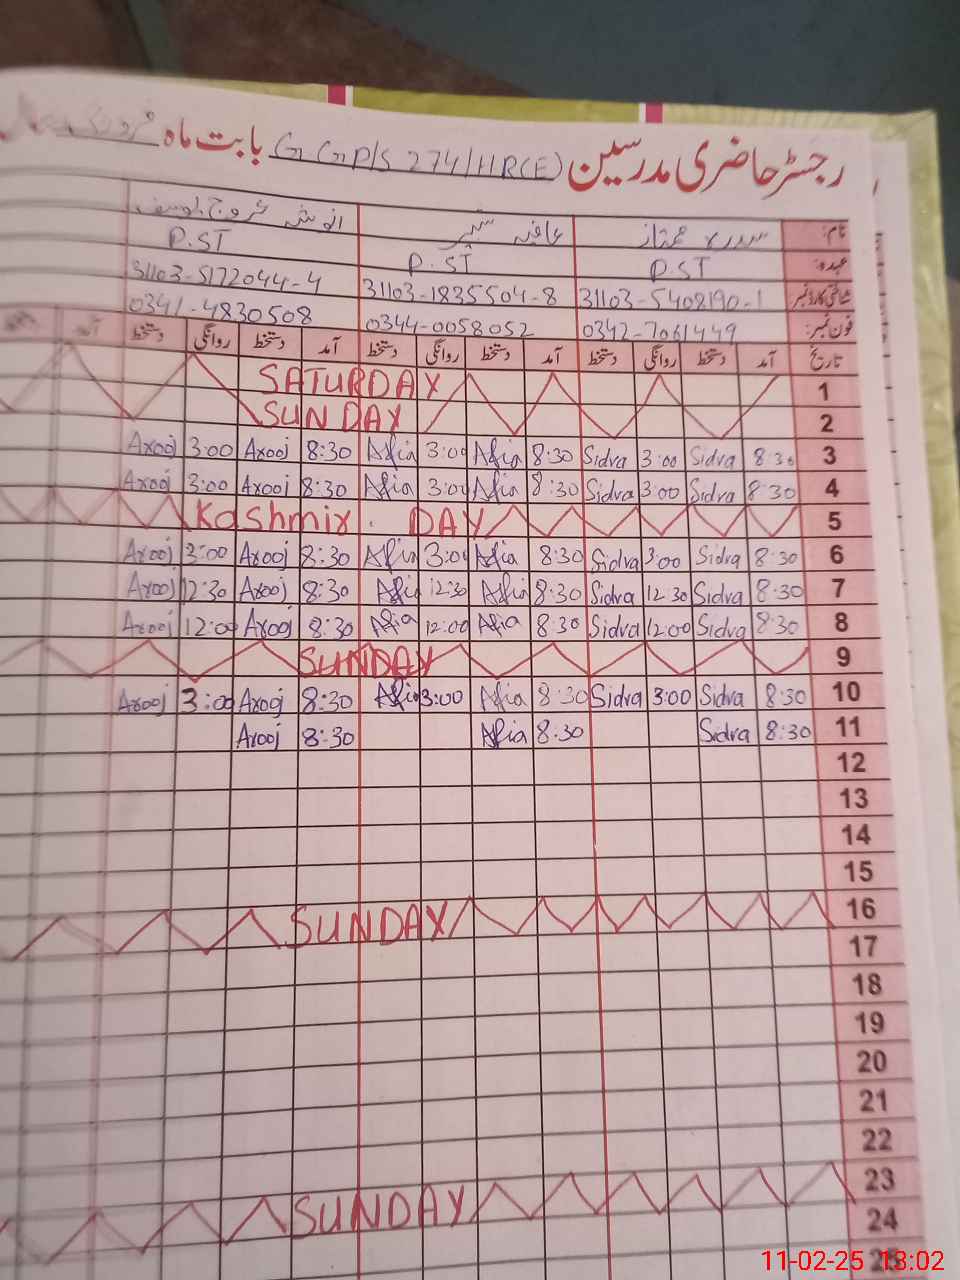 رجسٹر حاضری مدرسین GGP/S 274/HR(E) بابت ماہ فروری
نام: سدرہ ممتاز عافیہ انوش عروج یوسف
عہدہ: P.ST P.ST P.ST
شناختی کارڈ نمبر 31103-5408190-1 31103-1835504-8 31103-5172044-4
فون نمبر: 0342-7061449 0344-0058052 0341-4830508
تاریخ آمد دستخط روانگی دستخط آمد دستخط روانگی دستخط آمد دستخط روانگی دستخط آمد
1 SATURDAY
2 SUNDAY
3 8:30 Sidra 3:00 Sidra 8:30 Afia 3:00 Afia 8:30 Arooj 3:00 Arooj
4 8:30 Sidra 3:00 Sidra 8:30 Afia 3:00 Afia 8:30 Arooj 3:00 Arooj
5 Kashmir. DAY
6 8:30 Sidra 3:00 Sidra 8:30 Afia 3:00 Afia 8:30 Arooj 3:00 Arooj
7 8:30 Sidra 12:30 Sidra 8:30 Afia 12:30 Afia 8:30 Arooj 12:30 Arooj
8 8:30 Sidra 12:00 Sidra 8:30 Afia 12:00 Afia 8:30 Arooj 12:00 Arooj
9 SUNDAY
10 8:30 Sidra 3:00 Sidra 8:30 Afia 3:00 Afia 8:30 Arooj 3:00 Arooj
11 8:30 Sidra 8:30 Afia 8:30 Arooj
12
13
14
15
16 SUNDAY
17
18
19
20
21
22
23 SUNDAY
24
25
11-02-25 13:02